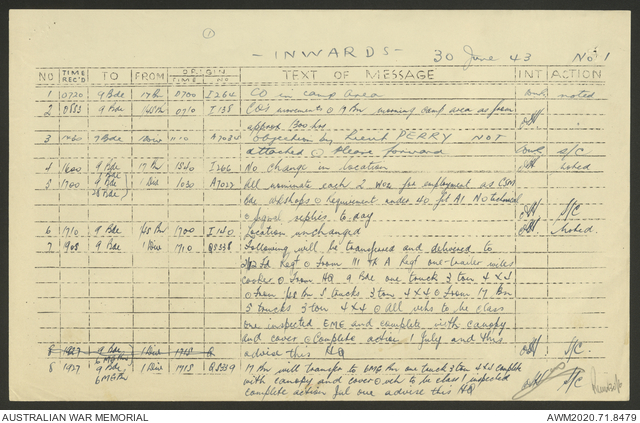 1
- INWARDS - 30 June 43 No 1
NO TIME REC'D TO FROM ORIGIN TIME NO TEXT OF MESSAGE INT ACTION
1 0720 9 Bde 17 Bn 0700 I264 CO in camp area noted
2 9 Bde 0710 I138 CO's movements 17 Bn camp area as from
approx 1300 hrs
3 9 Bde 1 Div A7034 Objection by Lieut PERRY NOT
attached Please forward S/C
4 1600 9 Bde 17 Bn 1540 I266 No change in location Noted
5 1700 9 Bde 1 Div 1030 A7027 All nominate each 2 WOs for employment as CSM
Bde wkshops Requirement under 40 fit A1 No technical
replies to day S/C
6 1710 9 Bde 1700 I140 Location unchanged Noted.
7 1908 9 Bde 1 Div 1710 Q5338 Following will be transferred and delivered to
Fd Regt From 111 Tk A Regt one trailer wiles
cooker From HQ 9 Bde one truck 3 ton 4x4
From trucks 3 ton 4x4 From 17 Bn
5 trucks 3 ton 4x4 All vehs to be class
one inspected EME and complete with canopy
and cover Complete action 1 July and this
8 1927 9 Bde 1 Div 1715 Q advise this HQ S/C.
8 1937 9 Bde 1 Div 1715 Q5339 17 Bn will transfer to 6MG Bn one truck 3 ton 4x4 complete
6 MG Bn with canopy and cover veh to be class 1 inspected S/C
complete action Jul one advise this HQ
AUSTRALIAN WAR MEMORIAL AWM2020.71.8479